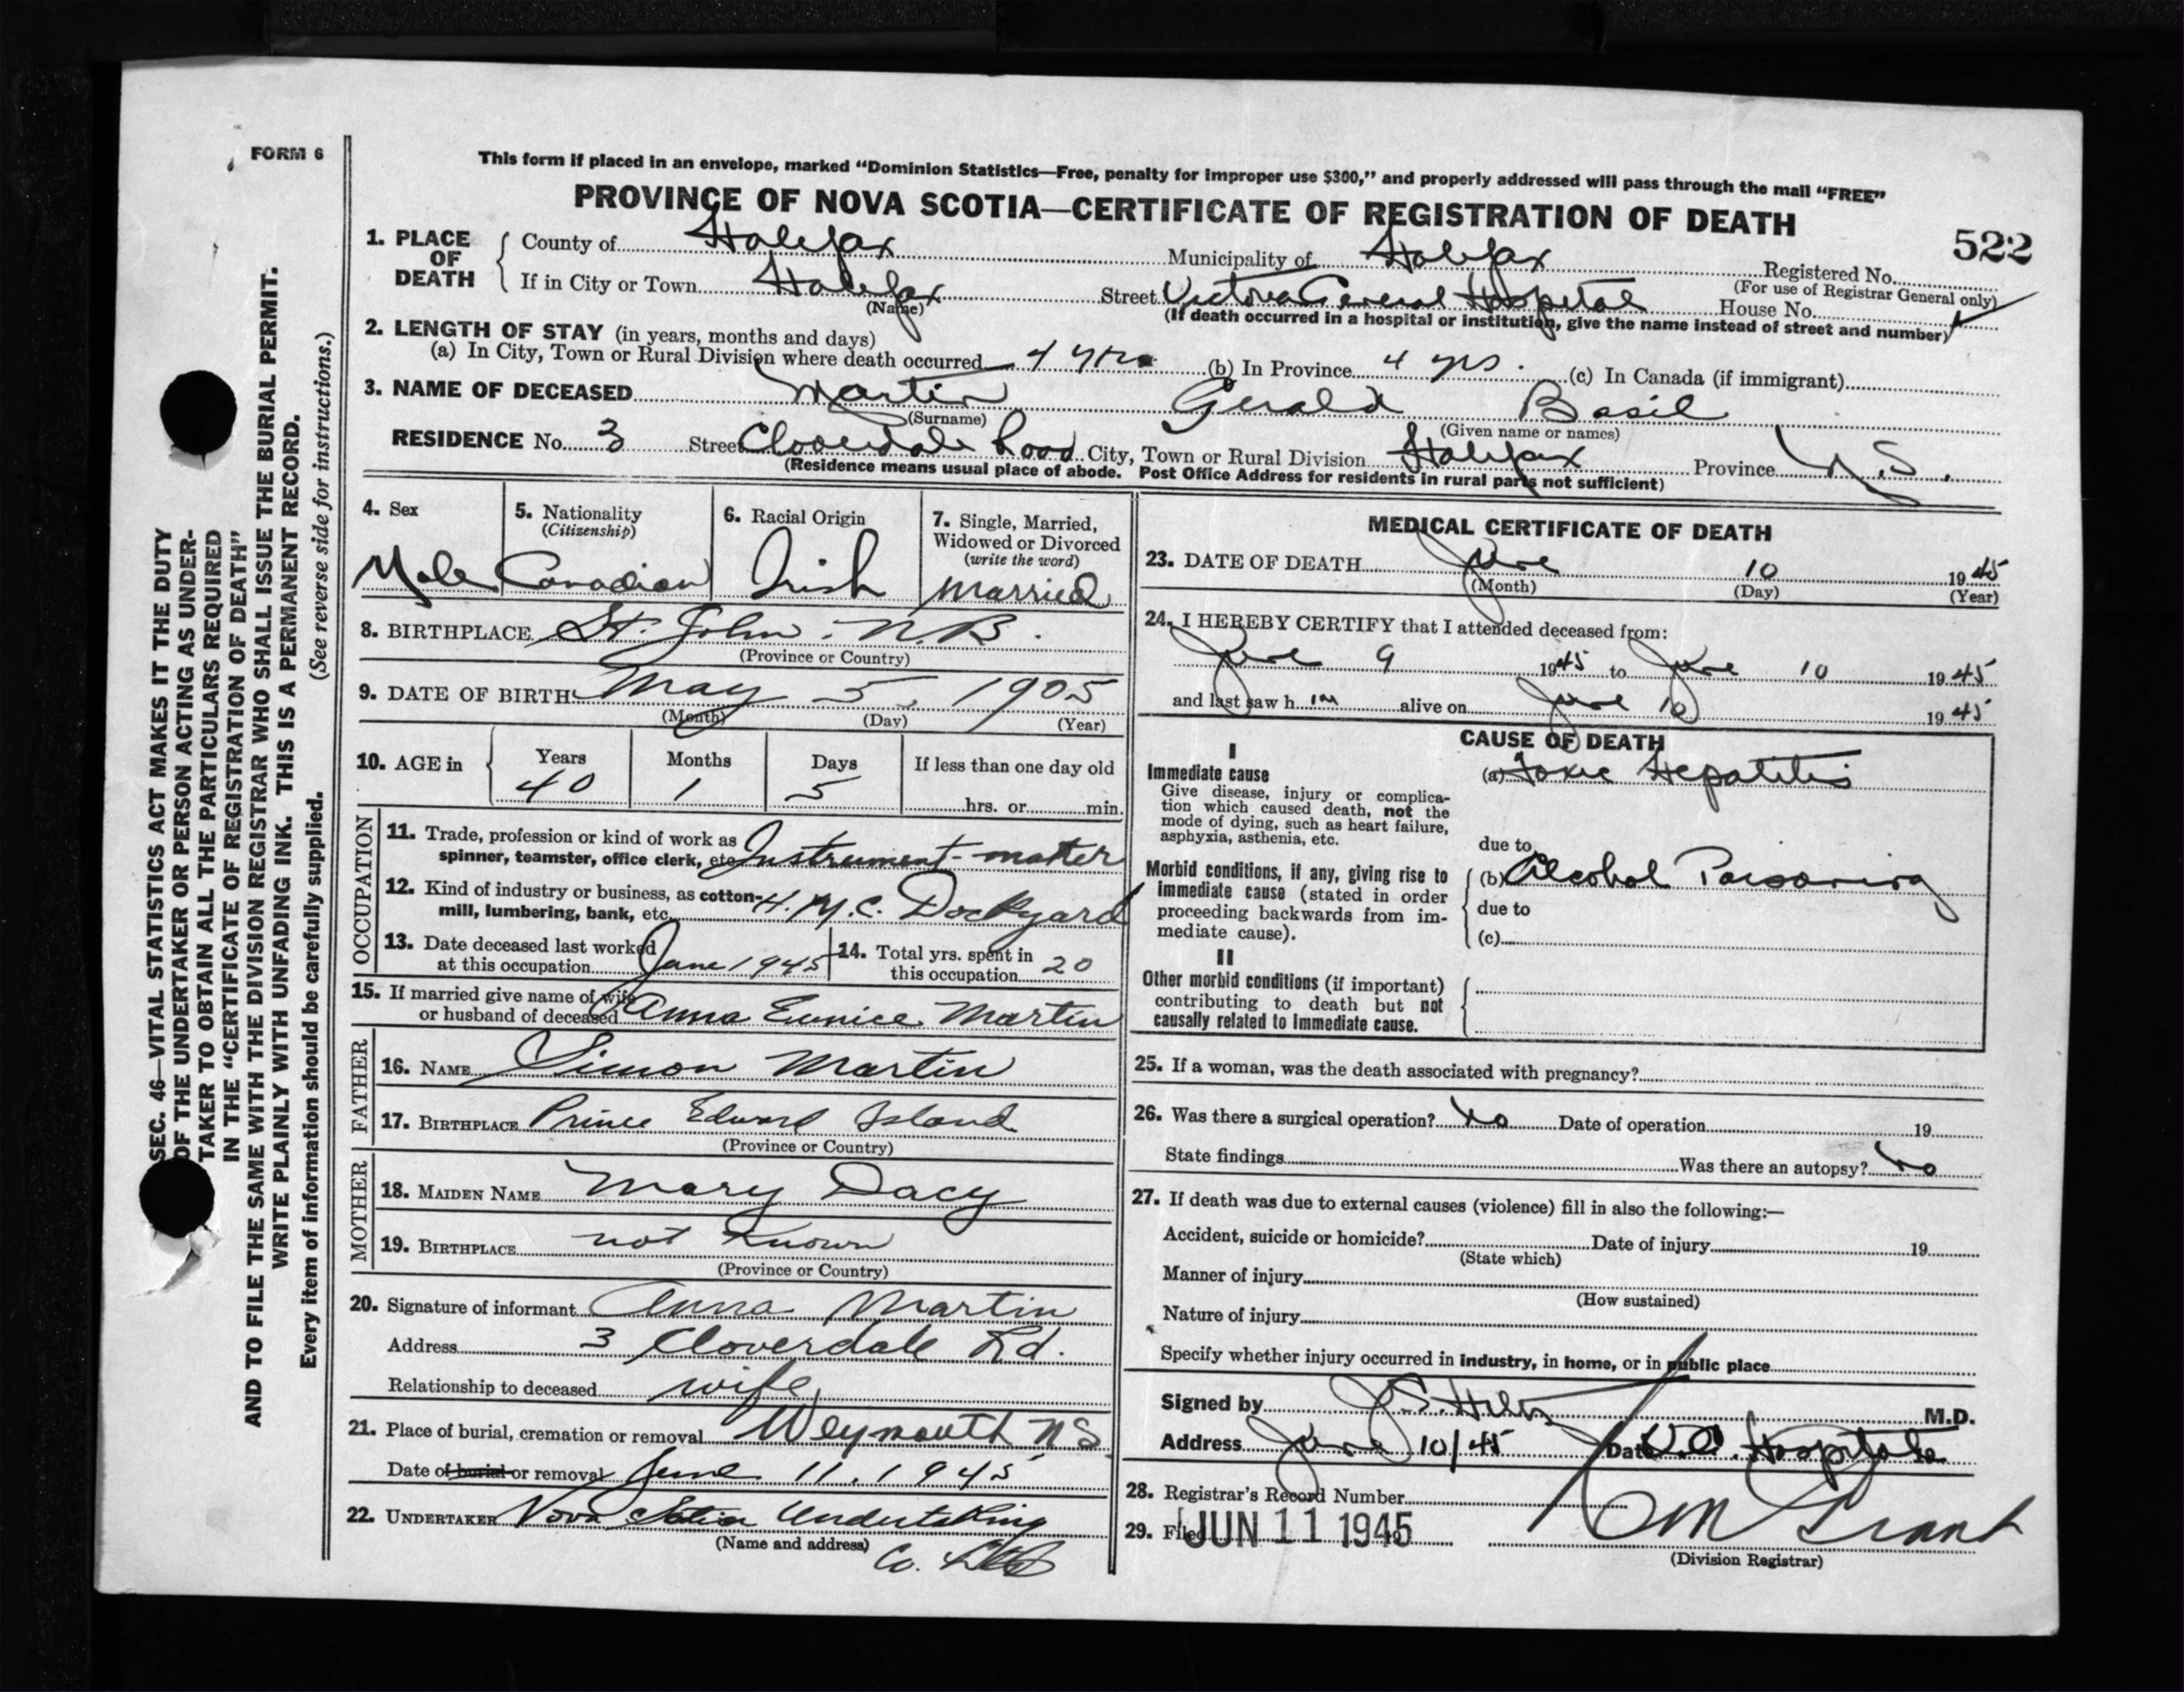 FORM 6
This form if placed in an envelope, marked “Dominion Statistics—Free, penalty for improper use $300,” and properly addressed will pass through the mail “FREE”
PROVINCE OF NOVA SCOTIA—CERTIFICATE OF REGISTRATION OF DEATH
522
1. PLACE OF DEATH
County of Halifax Municipality of Halifax Registered No.
(For use of Registrar General only)
If in City or Town Halifax Street Victoria General Hospital House No.
(Name) (If death occurred in a hospital or institution, give the name instead of street and number)
2. LENGTH OF STAY (in years, months and days)
(a) In City, Town or Rural Division where death occurred 4 yrs (b) In Province 4 yrs. (c) In Canada (if immigrant)
3. NAME OF DECEASED Martin Gerald Basil
(Surname) (Given name or names)
RESIDENCE No. 3 Street Cloverdale Road City, Town or Rural Division Halifax Province N.S.
(Residence means usual place of abode. Post Office Address for residents in rural parts not sufficient)
4. Sex
Male
5. Nationality
(Citizenship)
Canadian
6. Racial Origin
Irish
7. Single, Married,
Widowed or Divorced
(write the word)
Married
8. BIRTHPLACE St. John. N.B.
(Province or Country)
9. DATE OF BIRTH May 5, 1905
(Month) (Day) (Year)
10. AGE in
Years Months Days If less than one day old
40 1 5 hrs. or min.
OCCUPATION
11. Trade, profession or kind of work as
spinner, teamster, office clerk, etc. Instrument-maker
12. Kind of industry or business, as cotton-
mill, lumbering, bank, etc. H.M.C. Dockyard
13. Date deceased last worked
at this occupation June 1945
14. Total yrs. spent in
this occupation 20
15. If married give name of wife
or husband of deceased Anna Eunice Martin
FATHER
16. NAME Simon Martin
17. BIRTHPLACE Prince Edward Island
(Province or Country)
MOTHER
18. MAIDEN NAME Mary Dacy
19. BIRTHPLACE not known
(Province or Country)
20. Signature of informant Anna Martin
Address 3 Cloverdale Rd.
Relationship to deceased wife
21. Place of burial, cremation or removal Weymouth N S
Date of burial or removal June 11, 1945
22. UNDERTAKER Nova Scotia Undertaking
(Name and address) Co.
MEDICAL CERTIFICATE OF DEATH
23. DATE OF DEATH June 10 1945
(Month) (Day) (Year)
24. I HEREBY CERTIFY that I attended deceased from:
June 9 1945 to June 10 1945
and last saw h im alive on June 10 1945
CAUSE OF DEATH
I
Immediate cause
Give disease, injury or complica-
tion which caused death, not the
mode of dying, such as heart failure,
asphyxia, asthenia, etc.
(a) Toxic Hepatitis
due to
Morbid conditions, if any, giving rise to
immediate cause (stated in order
proceeding backwards from im-
mediate cause).
(b) Alcohol Poisoning
due to
(c)
II
Other morbid conditions (if important)
contributing to death but not
causally related to immediate cause.
25. If a woman, was the death associated with pregnancy?
26. Was there a surgical operation? No Date of operation 19
State findings Was there an autopsy? No
27. If death was due to external causes (violence) fill in also the following:—
Accident, suicide or homicide? Date of injury 19
(State which)
Manner of injury
(How sustained)
Nature of injury
Specify whether injury occurred in industry, in home, or in public place
Signed by J.S. M.D.
Address June 10/45 Date V.G. Hospital
28. Registrar's Record Number
29. Filed JUN 11 1945 Grant
(Division Registrar)
SEC. 46—VITAL STATISTICS ACT MAKES IT THE DUTY
OF THE UNDERTAKER OR PERSON ACTING AS UNDER-
TAKER TO OBTAIN ALL THE PARTICULARS REQUIRED
IN THE “CERTIFICATE OF REGISTRATION OF DEATH”
AND TO FILE THE SAME WITH THE DIVISION REGISTRAR WHO SHALL ISSUE THE BURIAL PERMIT.
WRITE PLAINLY WITH UNFADING INK. THIS IS A PERMANENT RECORD.
Every item of information should be carefully supplied. (See reverse side for instructions.)